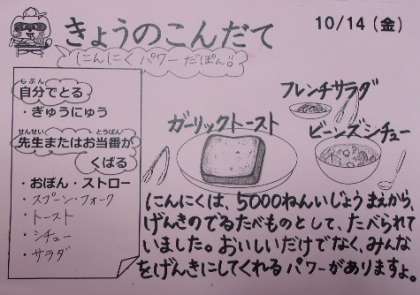 きょうのこんだて
10/14（金）
にんにくパワーだぽん！
じぶん
自分でとる
・ぎゅうにゅう
せんせい とうばん
先生またはお当番が
くばる
・おぼん・ストロー
・スプーン・フォーク
・トースト
・シチュー
・サラダ
フレンチサラダ
ガーリックトースト
ビーンズシチュー
にんにくは、5000ねんいじょうまえから、
げんきのでるたべものとして、たべられて
いました。おいしいだけでなく、みんな
をげんきにしてくれるパワーがありますよ。